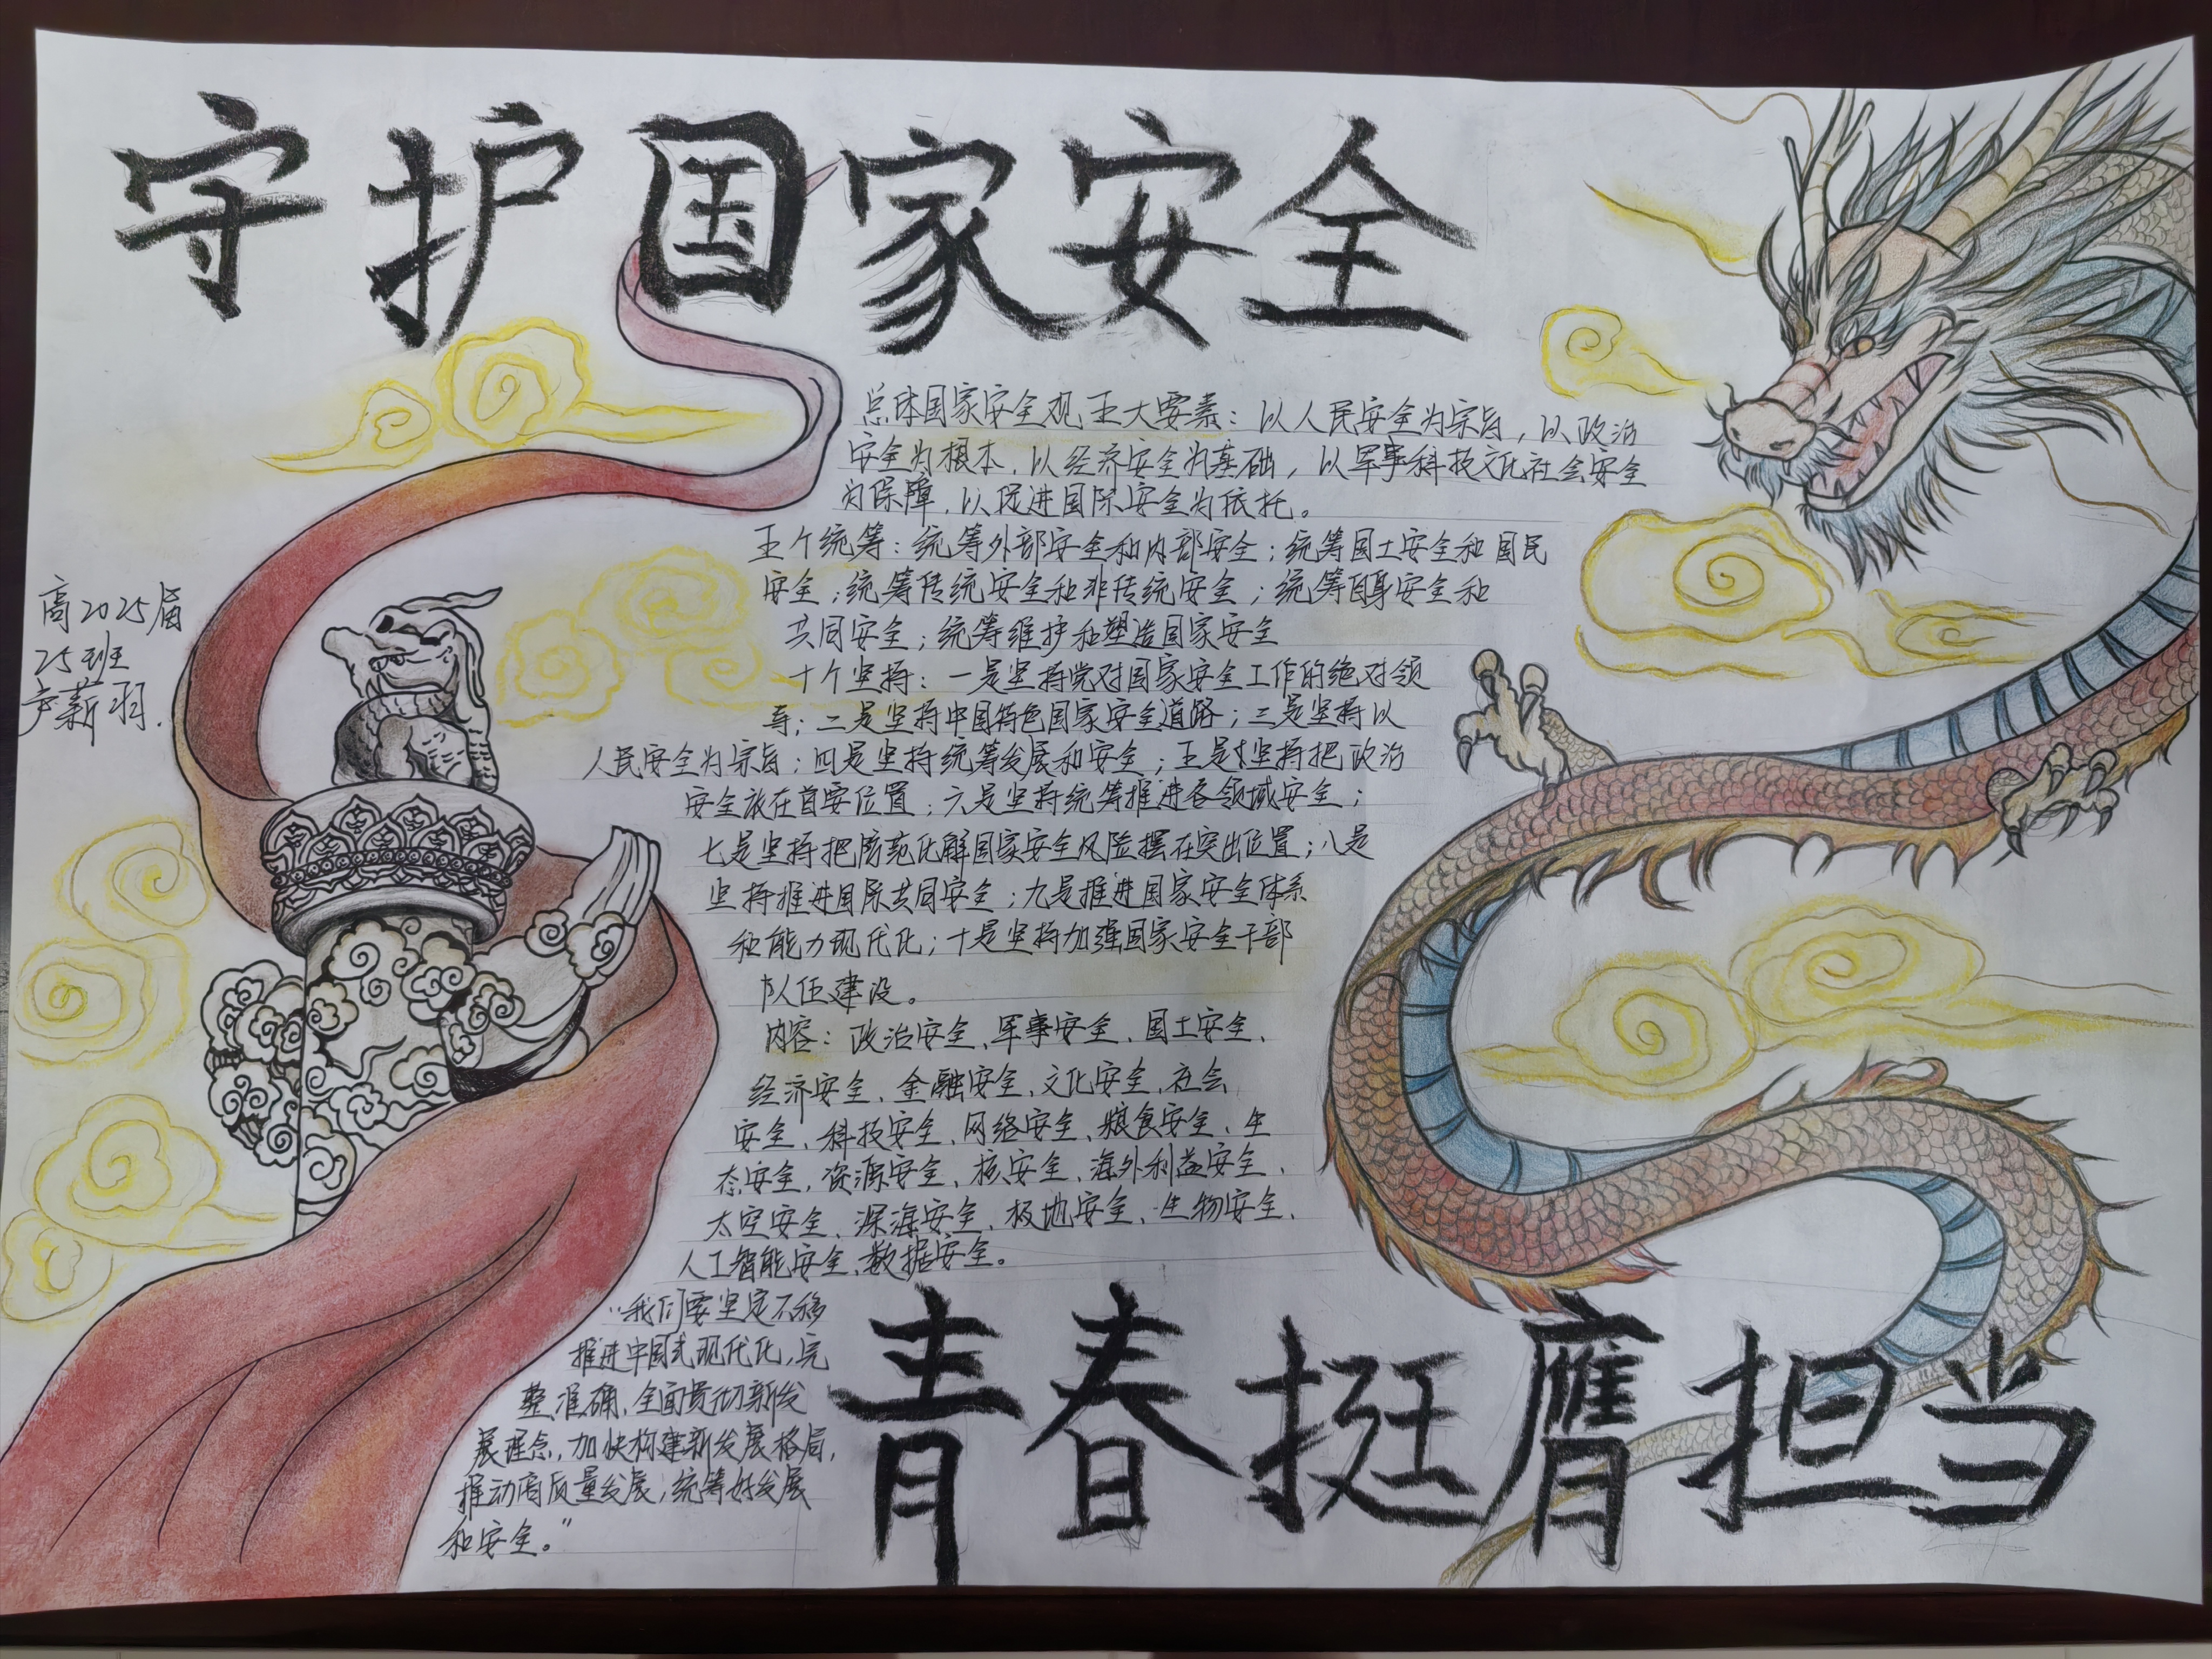 守护国家安全
总体国家安全观五大要素：以人民安全为宗旨，以政治
安全为根本，以经济安全为基础，以军事科技文化社会安全
为保障，以促进国际安全为依托。
五个统筹：统筹外部安全和内部安全；统筹国土安全和国民
安全；统筹传统安全和非传统安全；统筹自身安全和
共同安全；统筹维护和塑造国家安全
十个坚持：一是坚持党对国家安全工作的绝对领
导；二是坚持中国特色国家安全道路；三是坚持以
人民安全为宗旨；四是坚持统筹发展和安全；五是坚持把政治
安全放在首要位置；六是坚持统筹推进各领域安全；
七是坚持把防范化解国家安全风险摆在突出位置；八是
坚持推进国际共同安全；九是推进国家安全体系
和能力现代化；十是坚持加强国家安全干部
队伍建设。
内容：政治安全、军事安全、国土安全、
经济安全、金融安全、文化安全、社会
安全、科技安全、网络安全、粮食安全、生
态安全、资源安全、核安全、海外利益安全、
太空安全、深海安全、极地安全、生物安全、
人工智能安全、数据安全。
“我们要坚定不移
推进中国式现代化，完
整准确、全面贯彻新发
展理念，加快构建新发展格局，
推动高质量发展；统筹好发展
和安全。”
高2025届
25班
尹薪羽.
青春挺膺担当